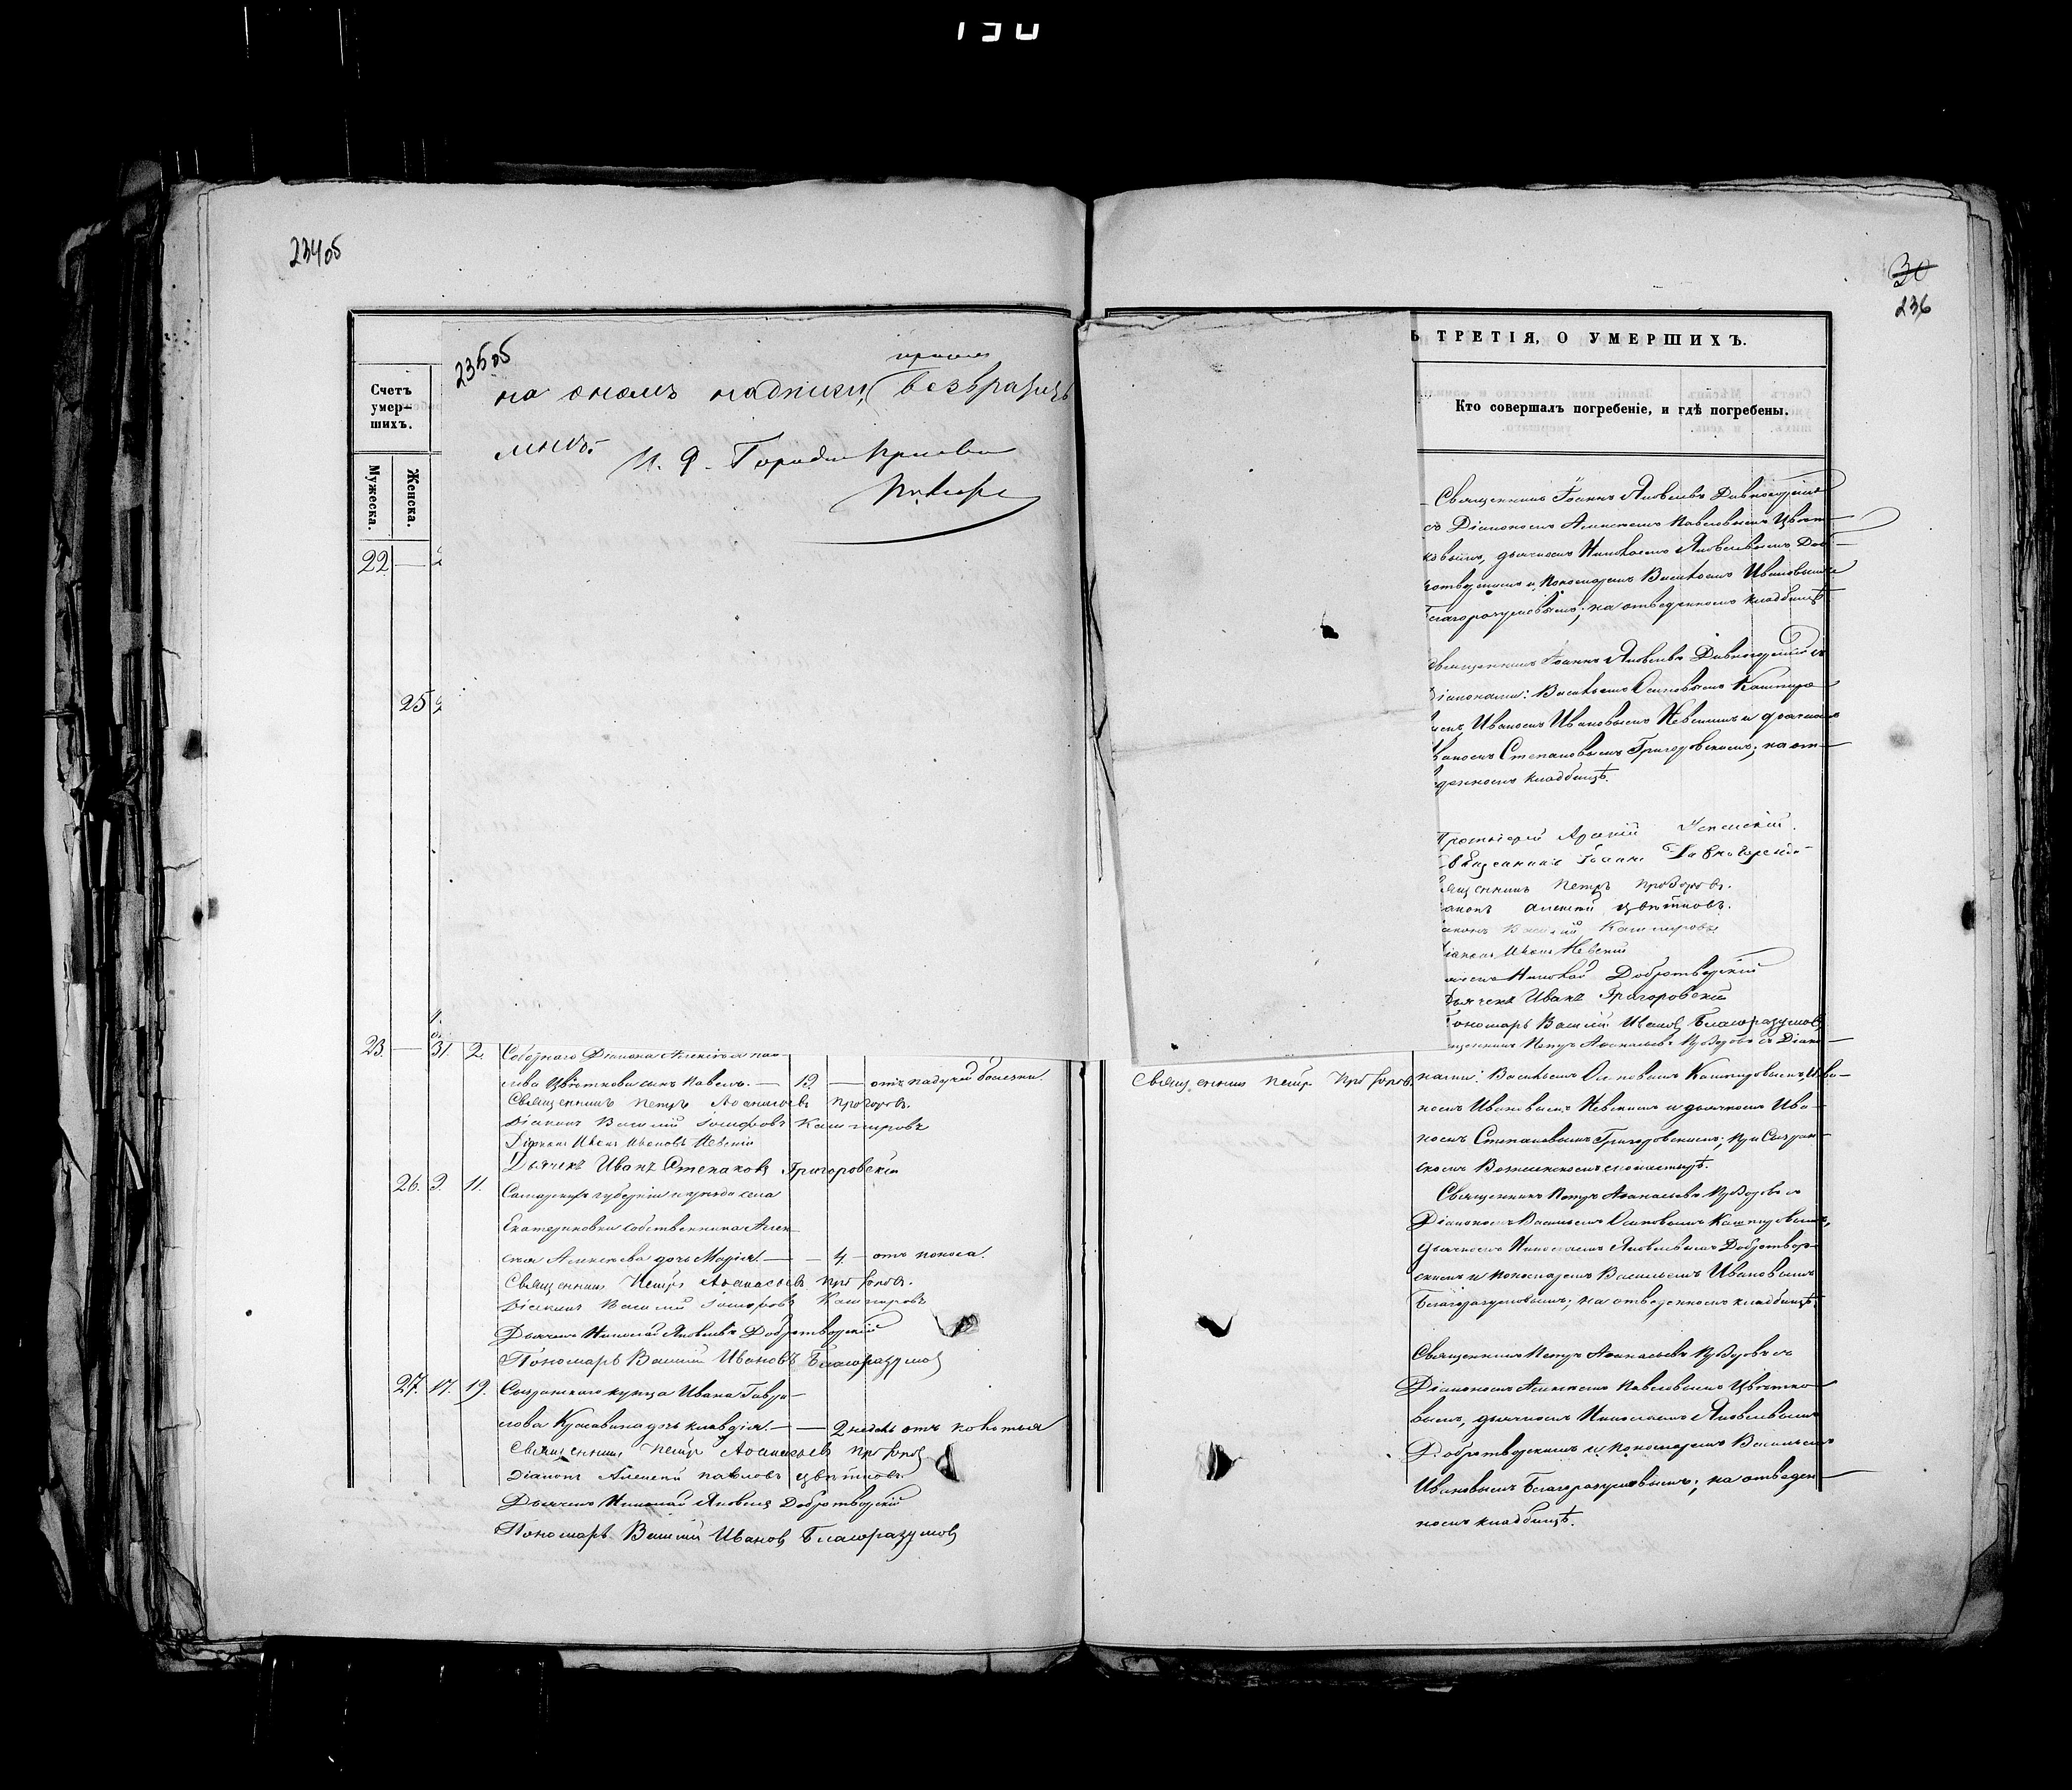 130
234об
30
236
235об
на ономъ надписи,
мнѣ.
И. Ф. Город
Ь ТРЕТІЯ, О УМЕРШИХЪ.
Счетъ
умер-
шихъ.
Мужеска.
Женска.
Кто совершалъ погребеніе, и гдѣ погребены.
22 —
25
Священникъ Іоаннъ Яковлевъ Дивногорскій
съ Діакономъ Алексѣемъ Павловымъ Цвѣт-
ковымъ, дьячкомъ Николаемъ Яковлевымъ Доб-
ротворскимъ и Пономаремъ Василіемъ Ивановымъ
Благоразумовымъ; на отведенномъ кладбищѣ.
Священникъ Іоаннъ Яковлевъ Дивногорскій съ
Діаконами: Василіемъ Осиповымъ Кашпиро-
Иваномъ Ивановымъ Невскимъ и дьячкомъ
Иваномъ Степановымъ Григоровскимъ; на от-
веденномъ кладбищѣ.
Протоіерей
Священникъ Іоаннъ Дивногорскій
Священникъ Петръ Прозоровъ.
Діаконъ Алексѣй Цвѣтковъ.
Діаконъ Василій Кашпировъ
Діаконъ Иванъ Невскій
Николай Добротворскій
Дьячекъ Иванъ Григоровскій
Пономарь Василій Ивановъ Благоразумовъ
23. — 31. 2. Соборнаго Діакона Алексѣя Пав-
лова Цвѣткова сынъ Павелъ. — 12 — отъ падучей болезни.
Священникъ Петръ Аѳанасьевъ Прозоровъ.
Діаконъ Василій Іосифовъ Кашпировъ
Діаконъ Иванъ Ивановъ Невскій
Дьячекъ Иванъ Степановъ Григоровскій
Священникъ Петръ Прозоровъ
Священникъ Петръ Аѳанасьевъ Прозоровъ съ Діако-
нами: Василіемъ Осиповымъ Кашпировымъ, Ива-
номъ Ивановымъ Невскимъ и дьячкомъ Ива-
номъ Степановымъ Григоровскимъ; при Сызран-
скомъ Вознесенскомъ монастырѣ.
26. 9. 11. Самарской губерніи и уѣзда села
Екатериновки собственника Алек-
сѣя Алексѣева дочь Марія. — — 4 — отъ поноса.
Священникъ Петръ Аѳанасьевъ Прозоровъ.
Діаконъ Василій Іосифовъ Кашпировъ
Дьячекъ Николай Яковлевъ Добротворскій
Пономарь Василій Ивановъ Благоразумовъ
Священникъ Петръ Аѳанасьевъ Прозоровъ съ
Діакономъ Василіемъ Осиповымъ Кашпировымъ,
дьячкомъ Николаемъ Яковлевымъ Добротвор-
скимъ и пономаремъ Василіемъ Ивановымъ
Благоразумовымъ; на отведенномъ кладбищѣ.
27. 17. 19. Сызранскаго купца Ивана Гаври-
лова Красавина дочь Клавдія. — — 2 недѣль отъ коклюша
Священникъ Петръ Аѳанасьевъ Прозоровъ
Діаконъ Алексѣй Павловъ Цвѣтковъ
Дьячекъ Николай Яковлевъ Добротворскій
Пономарь Василій Ивановъ Благоразумовъ
Священникъ Петръ Аѳанасьевъ Прозоровъ съ
Діакономъ Алексѣемъ Павловымъ Цвѣтко-
вымъ, дьячкомъ Николаемъ Яковлевымъ
Добротворскимъ и пономаремъ Василіемъ
Ивановымъ Благоразумовымъ; на отведен-
номъ кладбищѣ.